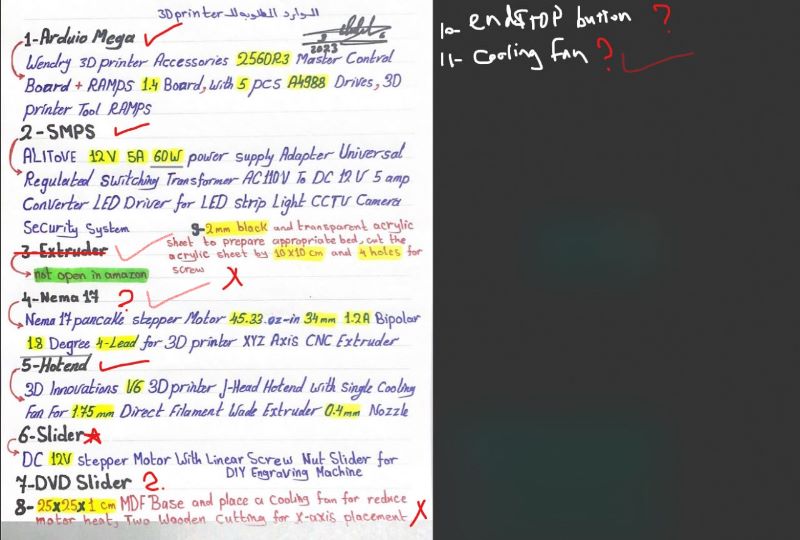 3D printer الموارد المطلوبة لل
2023
1-Arduio Mega
Wendry 3D printer Accessories 2560R3 Master Control
Board + RAMPS 1.4 Board, with 5 pcs A4988 Drives, 3D
printer Tool RAMPS
2-SMPS
ALITOVE 12V 5A 60W power supply Adapter Universal
Regulated Switching Transformer AC110V To DC 12V 5 amp
Converter LED Driver for LED strip Light CCTV Camera
Security System
9-2mm black and transparent acrylic
sheet to prepare appropriate bed, cut the
acrylic sheet by 10x10 cm and 4 holes for
screw X
3-Extruder
not open in amazon
4-Nema 17 ?
Nema 17 pancake stepper Motor 45.33.oz-in 34mm 1.2A Bipolar
1.8 Degree 4-Lead for 3D printer XYZ Axis CNC Extruder
5-Hotend
3D Innovations V6 3D printer J-Head Hotend with Single Cooling
Fan For 1.75mm Direct Filament Wade Extruder 0.4mm Nozzle
6-Slider
DC 12V stepper Motor With Linear Screw Nut Slider for
DIY Engraving Machine
7-DVD Slider 2.
8-25x25x1 cm MDF Base and place a Cooling fan for reduce
motor heat, Two Wooden Cutting for X-axis placement X
10- endSTOP button ?
11- Cooling Fan ?